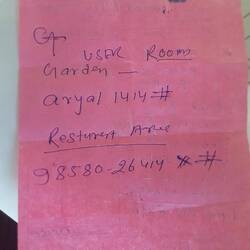 USER ROOMS
Garden —
aryal 1414#
Resturent Area
98580-26414 * #